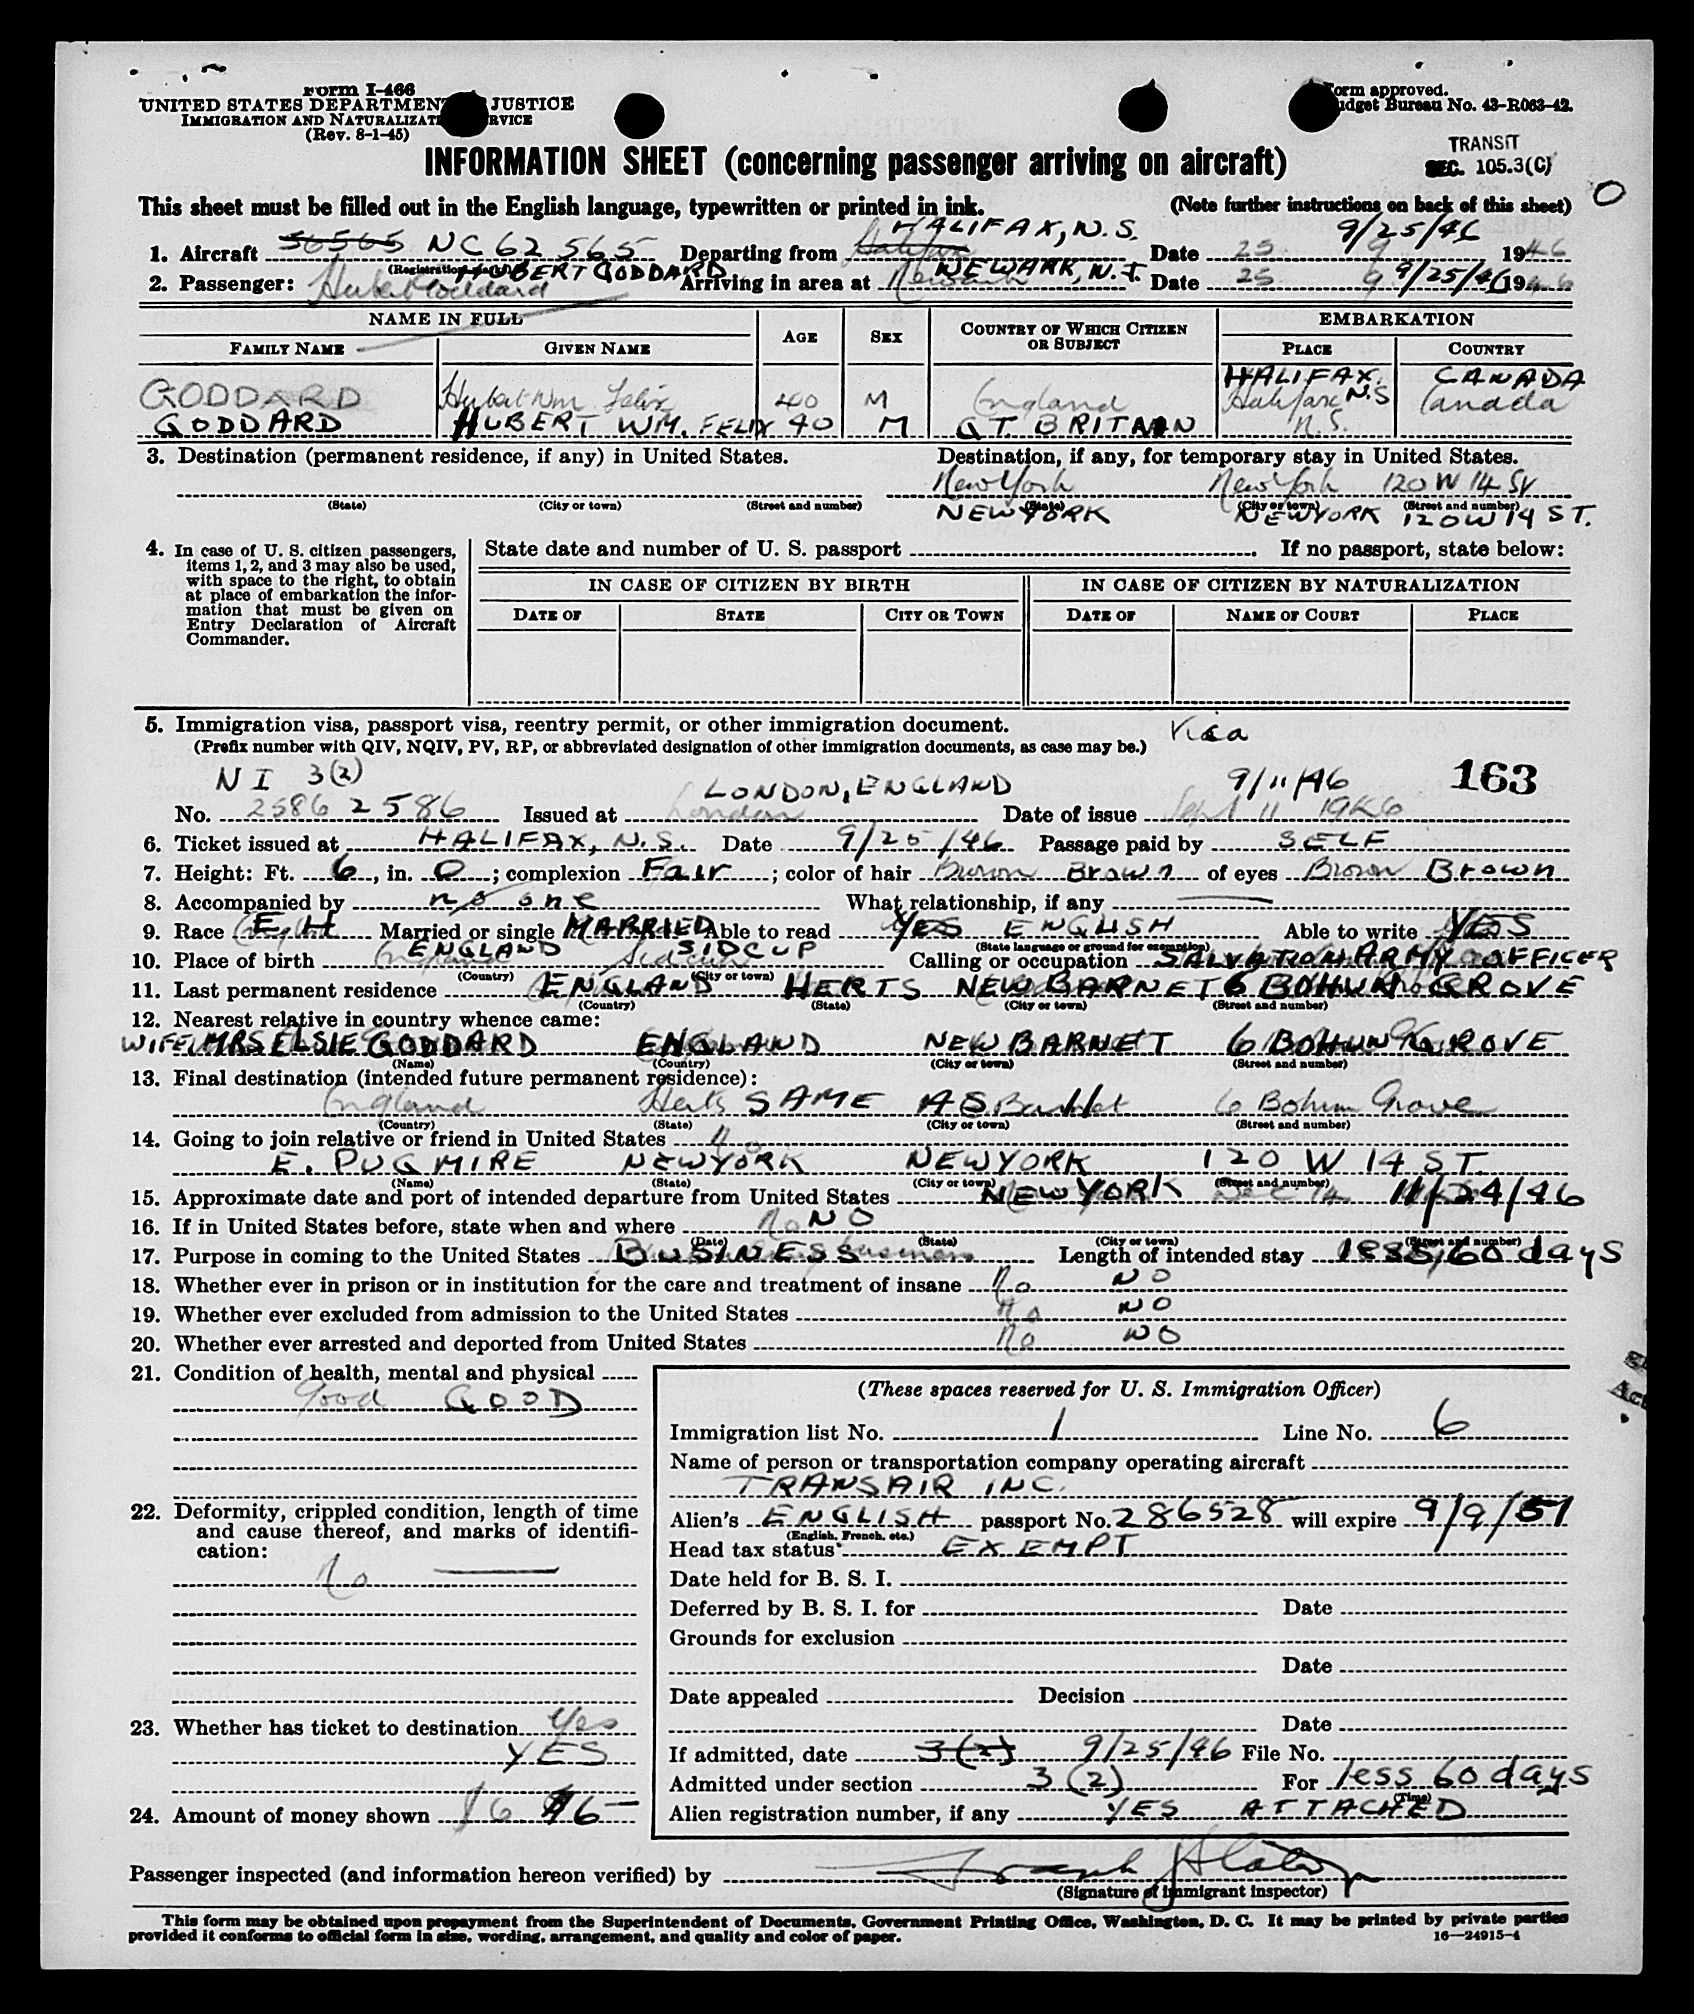 Form I-466
UNITED STATES DEPARTMENT JUSTICE
IMMIGRATION AND NATURALIZATION SERVICE
(Rev. 8-1-45)
Form approved.
Budget Bureau No. 43-R063-42.
TRANSIT
SEC. 105.3(C)
INFORMATION SHEET (concerning passenger arriving on aircraft)
O
This sheet must be filled out in the English language, typewritten or printed in ink.
(Note further instructions on back of this sheet)
HALIFAX, N.S. 9/25/46
1. Aircraft 56565 NC 62565 Departing from Halifax Date 25 9 1946
(Registration mark) HUBERT GODDARD NEWARK, N.J. 9/25/46
2. Passenger: Hubert Goddard Arriving in area at Newark Date 25 9 1946
NAME IN FULL AGE SEX COUNTRY OF WHICH CITIZEN OR SUBJECT EMBARKATION
FAMILY NAME GIVEN NAME PLACE COUNTRY
HALIFAX N.S CANADA
GODDARD Hubert Wm Felix 40 M England Halifax N.S. Canada
GODDARD HUBERT WM. FELIX 40 M GT. BRITAIN
3. Destination (permanent residence, if any) in United States. Destination, if any, for temporary stay in United States.
New York New York 120 W 14 St
(State) (City or town) (Street and number) (State) (City or town) (Street and number)
NEW YORK NEW YORK 120 W 14 ST.
4. In case of U. S. citizen passengers, items 1, 2, and 3 may also be used, with space to the right, to obtain at place of embarkation the information that must be given on Entry Declaration of Aircraft Commander.
State date and number of U. S. passport . If no passport, state below:
IN CASE OF CITIZEN BY BIRTH IN CASE OF CITIZEN BY NATURALIZATION
DATE OF STATE CITY OR TOWN DATE OF NAME OF COURT PLACE
5. Immigration visa, passport visa, reentry permit, or other immigration document. Visa
(Prefix number with QIV, NQIV, PV, RP, or abbreviated designation of other immigration documents, as case may be.)
NI 3(2) LONDON, ENGLAND 9/11/46 163
No. 2586 2586 Issued at London Date of issue Sept 11 1946
6. Ticket issued at HALIFAX, N.S. Date 9/25/46 Passage paid by SELF
7. Height: Ft. 6, in. 0; complexion Fair; color of hair Brown Brown of eyes Brown Brown
8. Accompanied by no one What relationship, if any —
9. Race English EH Married or single MARRIED Able to read YES ENGLISH Able to write YES
(State language or ground for exemption)
10. Place of birth England ENGLAND Sidcup SIDCUP Calling or occupation SALVATION ARMY OFFICER
(Country) (City or town)
11. Last permanent residence ENGLAND HERTS NEW BARNET 6 BOHUN GROVE
(Country) (State) (City or town) (Street and number)
12. Nearest relative in country whence came:
WIFE, MRS ELSIE GODDARD ENGLAND NEW BARNET 6 BOHUN GROVE
(Name) (Country) (City or town) (Street and number)
13. Final destination (intended future permanent residence):
England Herts SAME AS 11 Barnet 6 Bohun Grove
(Country) (State) (City or town) (Street and number)
14. Going to join relative or friend in United States No
E. PUGMIRE NEW YORK NEW YORK 120 W 14 ST.
(Name) (State) (City or town) (Street and number)
15. Approximate date and port of intended departure from United States NEW YORK Dec 14 11/24/46
16. If in United States before, state when and where No NO
(Date) (State) (City or town) (Street and number)
17. Purpose in coming to the United States BUSINESS Length of intended stay less 60 days
18. Whether ever in prison or in institution for the care and treatment of insane No NO
19. Whether ever excluded from admission to the United States No NO
20. Whether ever arrested and deported from United States No NO
21. Condition of health, mental and physical
Good GOOD
22. Deformity, crippled condition, length of time and cause thereof, and marks of identification:
No —
23. Whether has ticket to destination Yes
YES
24. Amount of money shown
(These spaces reserved for U. S. Immigration Officer)
Immigration list No. 1 Line No. 6
Name of person or transportation company operating aircraft
TRANSAIR INC.
Alien's ENGLISH passport No. 286528 will expire 9/9/51
(English, French, etc.)
Head tax status EXEMPT
Date held for B. S. I.
Deferred by B. S. I. for Date
Grounds for exclusion
Date
Date appealed Decision
Date
If admitted, date 3(2) 9/25/46 File No.
Admitted under section 3(2) For less 60 days
(Time)
Alien registration number, if any YES ATTACHED
Passenger inspected (and information hereon verified) by
(Signature of immigrant inspector)
This form may be obtained upon prepayment from the Superintendent of Documents, Government Printing Office, Washington, D. C. It may be printed by private parties
provided it conforms to official form in size, wording, arrangement, and quality and color of paper.
16—24915-4